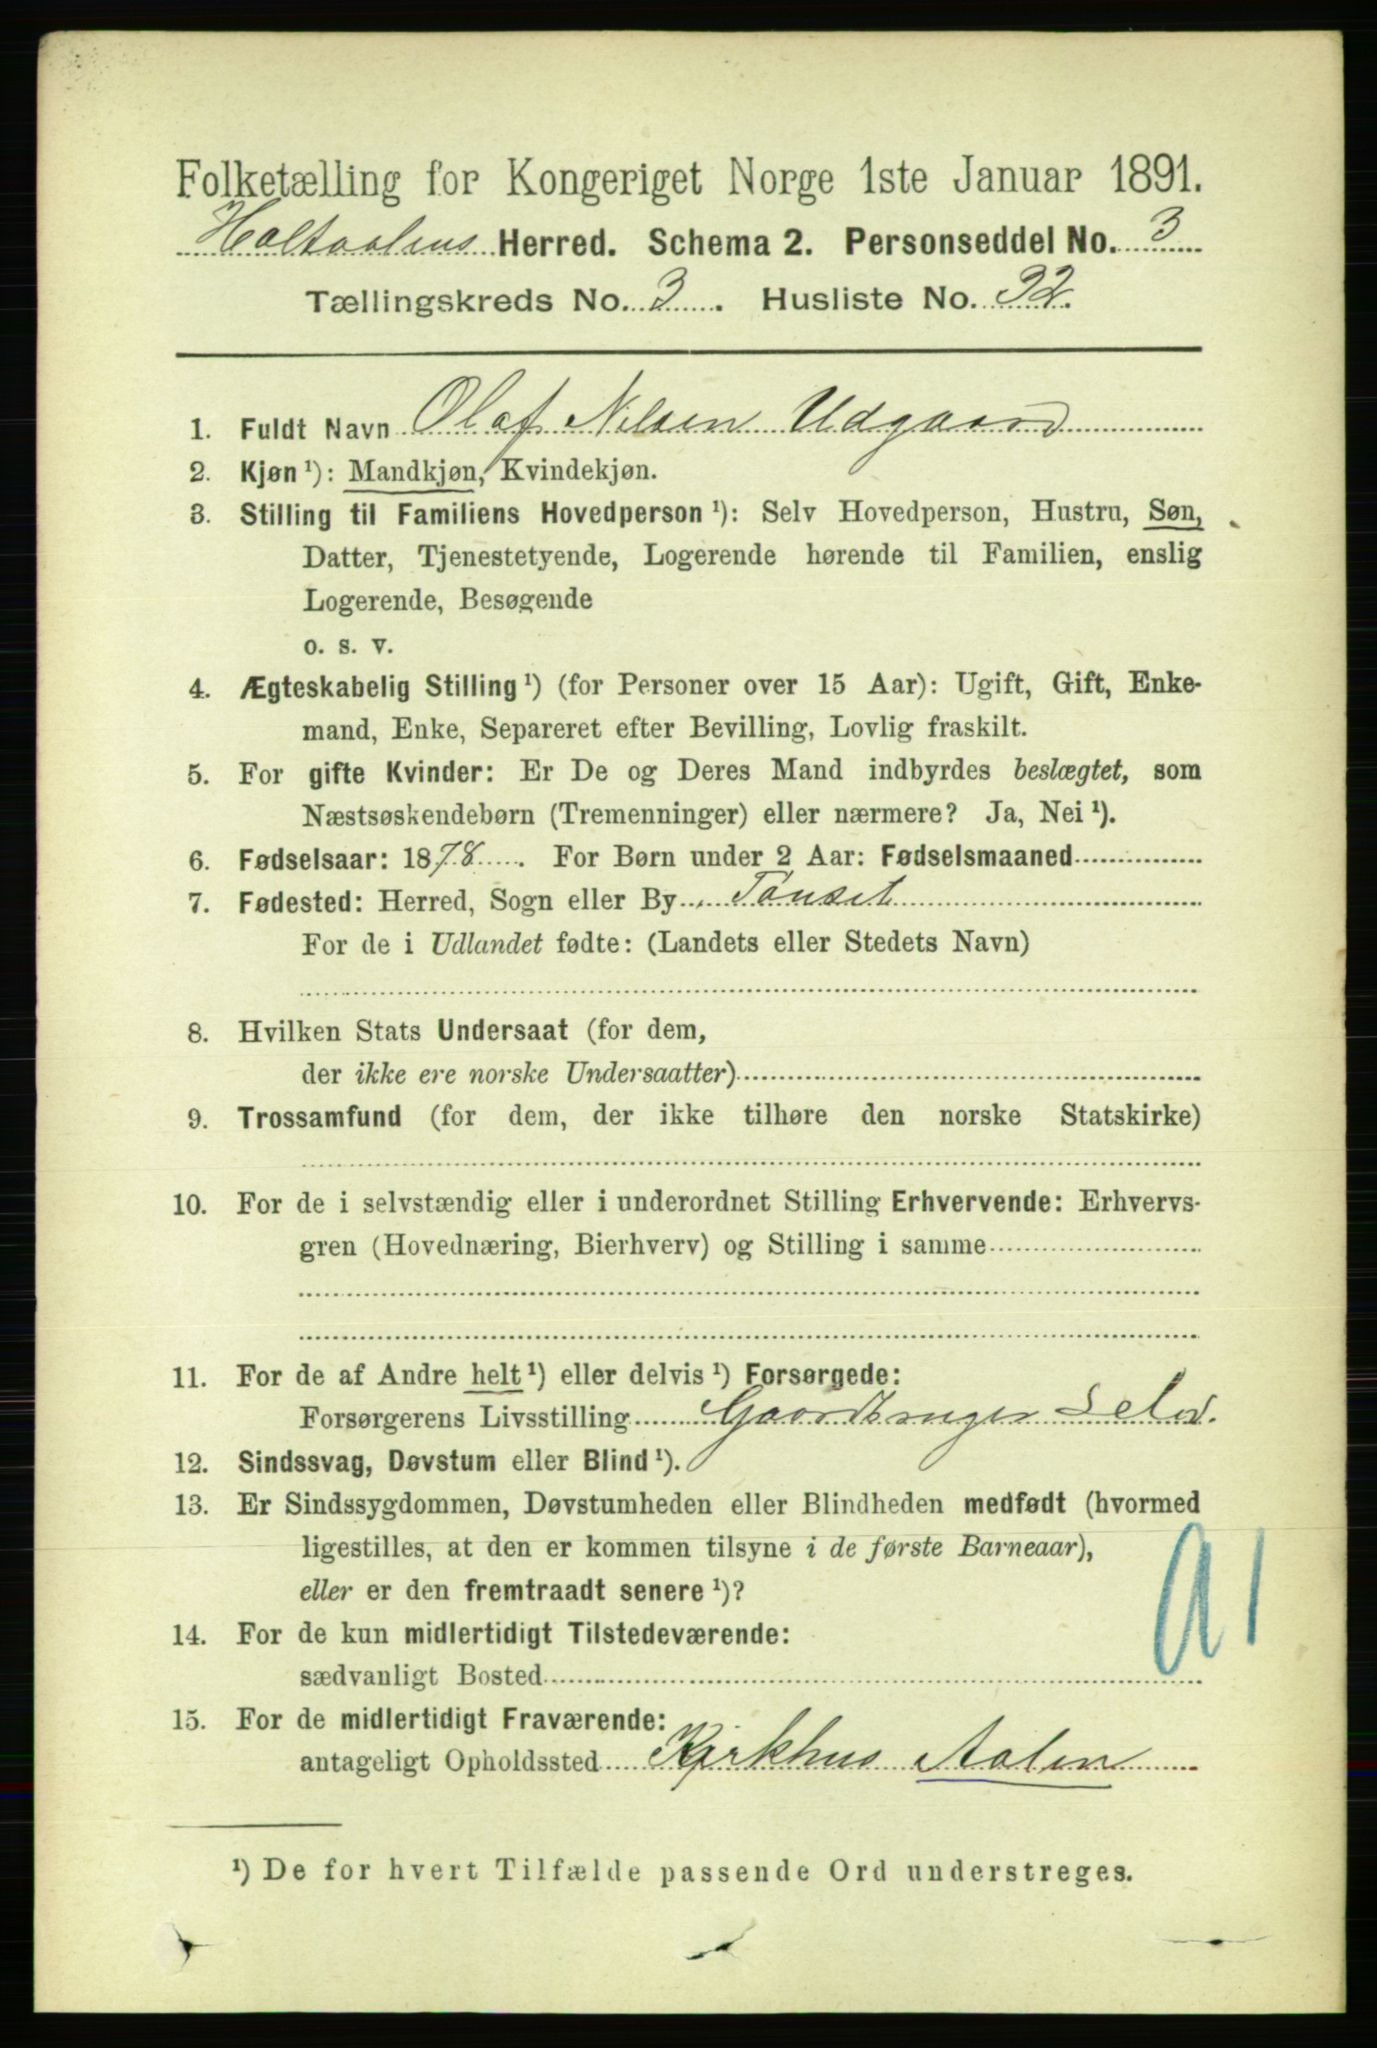 Folketælling for Kongeriget Norge 1ste Januar 1891.
Holtaalens Herred. Schema 2. Personseddel No. 3
Tællingskreds No. 3. Husliste No. 32.
1. Fuldt Navn Olaf Nilsen Udgaard
2. Kjøn ¹): Mandkjøn, Kvindekjøn.
3. Stilling til Familiens Hovedperson ¹): Selv Hovedperson, Hustru, Søn,
Datter, Tjenestetyende, Logerende hørende til Familien, enslig
Logerende, Besøgende
o. s. v.
4. Ægteskabelig Stilling ¹) (for Personer over 15 Aar): Ugift, Gift, Enke-
mand, Enke, Separeret efter Bevilling, Lovlig fraskilt.
5. For gifte Kvinder: Er De og Deres Mand indbyrdes beslægtet, som
Næstsøskendebørn (Tremenninger) eller nærmere? Ja, Nei ¹).
6. Fødselsaar: 1878. For Børn under 2 Aar: Fødselsmaaned
7. Fødested: Herred, Sogn eller By Tønset
For de i Udlandet fødte: (Landets eller Stedets Navn)
8. Hvilken Stats Undersaat (for dem,
der ikke ere norske Undersaatter)
9. Trossamfund (for dem, der ikke tilhøre den norske Statskirke)
10. For de i selvstændig eller i underordnet Stilling Erhvervende: Erhvervs-
gren (Hovednæring, Bierhverv) og Stilling i samme
11. For de af Andre helt ¹) eller delvis ¹) Forsørgede:
Forsørgerens Livsstilling Gaardbruger Selv.
12. Sindssvag, Døvstum eller Blind ¹).
13. Er Sindssygdommen, Døvstumheden eller Blindheden medfødt (hvormed
ligestilles, at den er kommen tilsyne i de første Barneaar),
eller er den fremtraadt senere ¹)?
14. For de kun midlertidigt Tilstedeværende:
sædvanligt Bosted
15. For de midlertidigt Fraværende:
antageligt Opholdssted Kirkhus Aalen
¹) De for hvert Tilfælde passende Ord understreges.